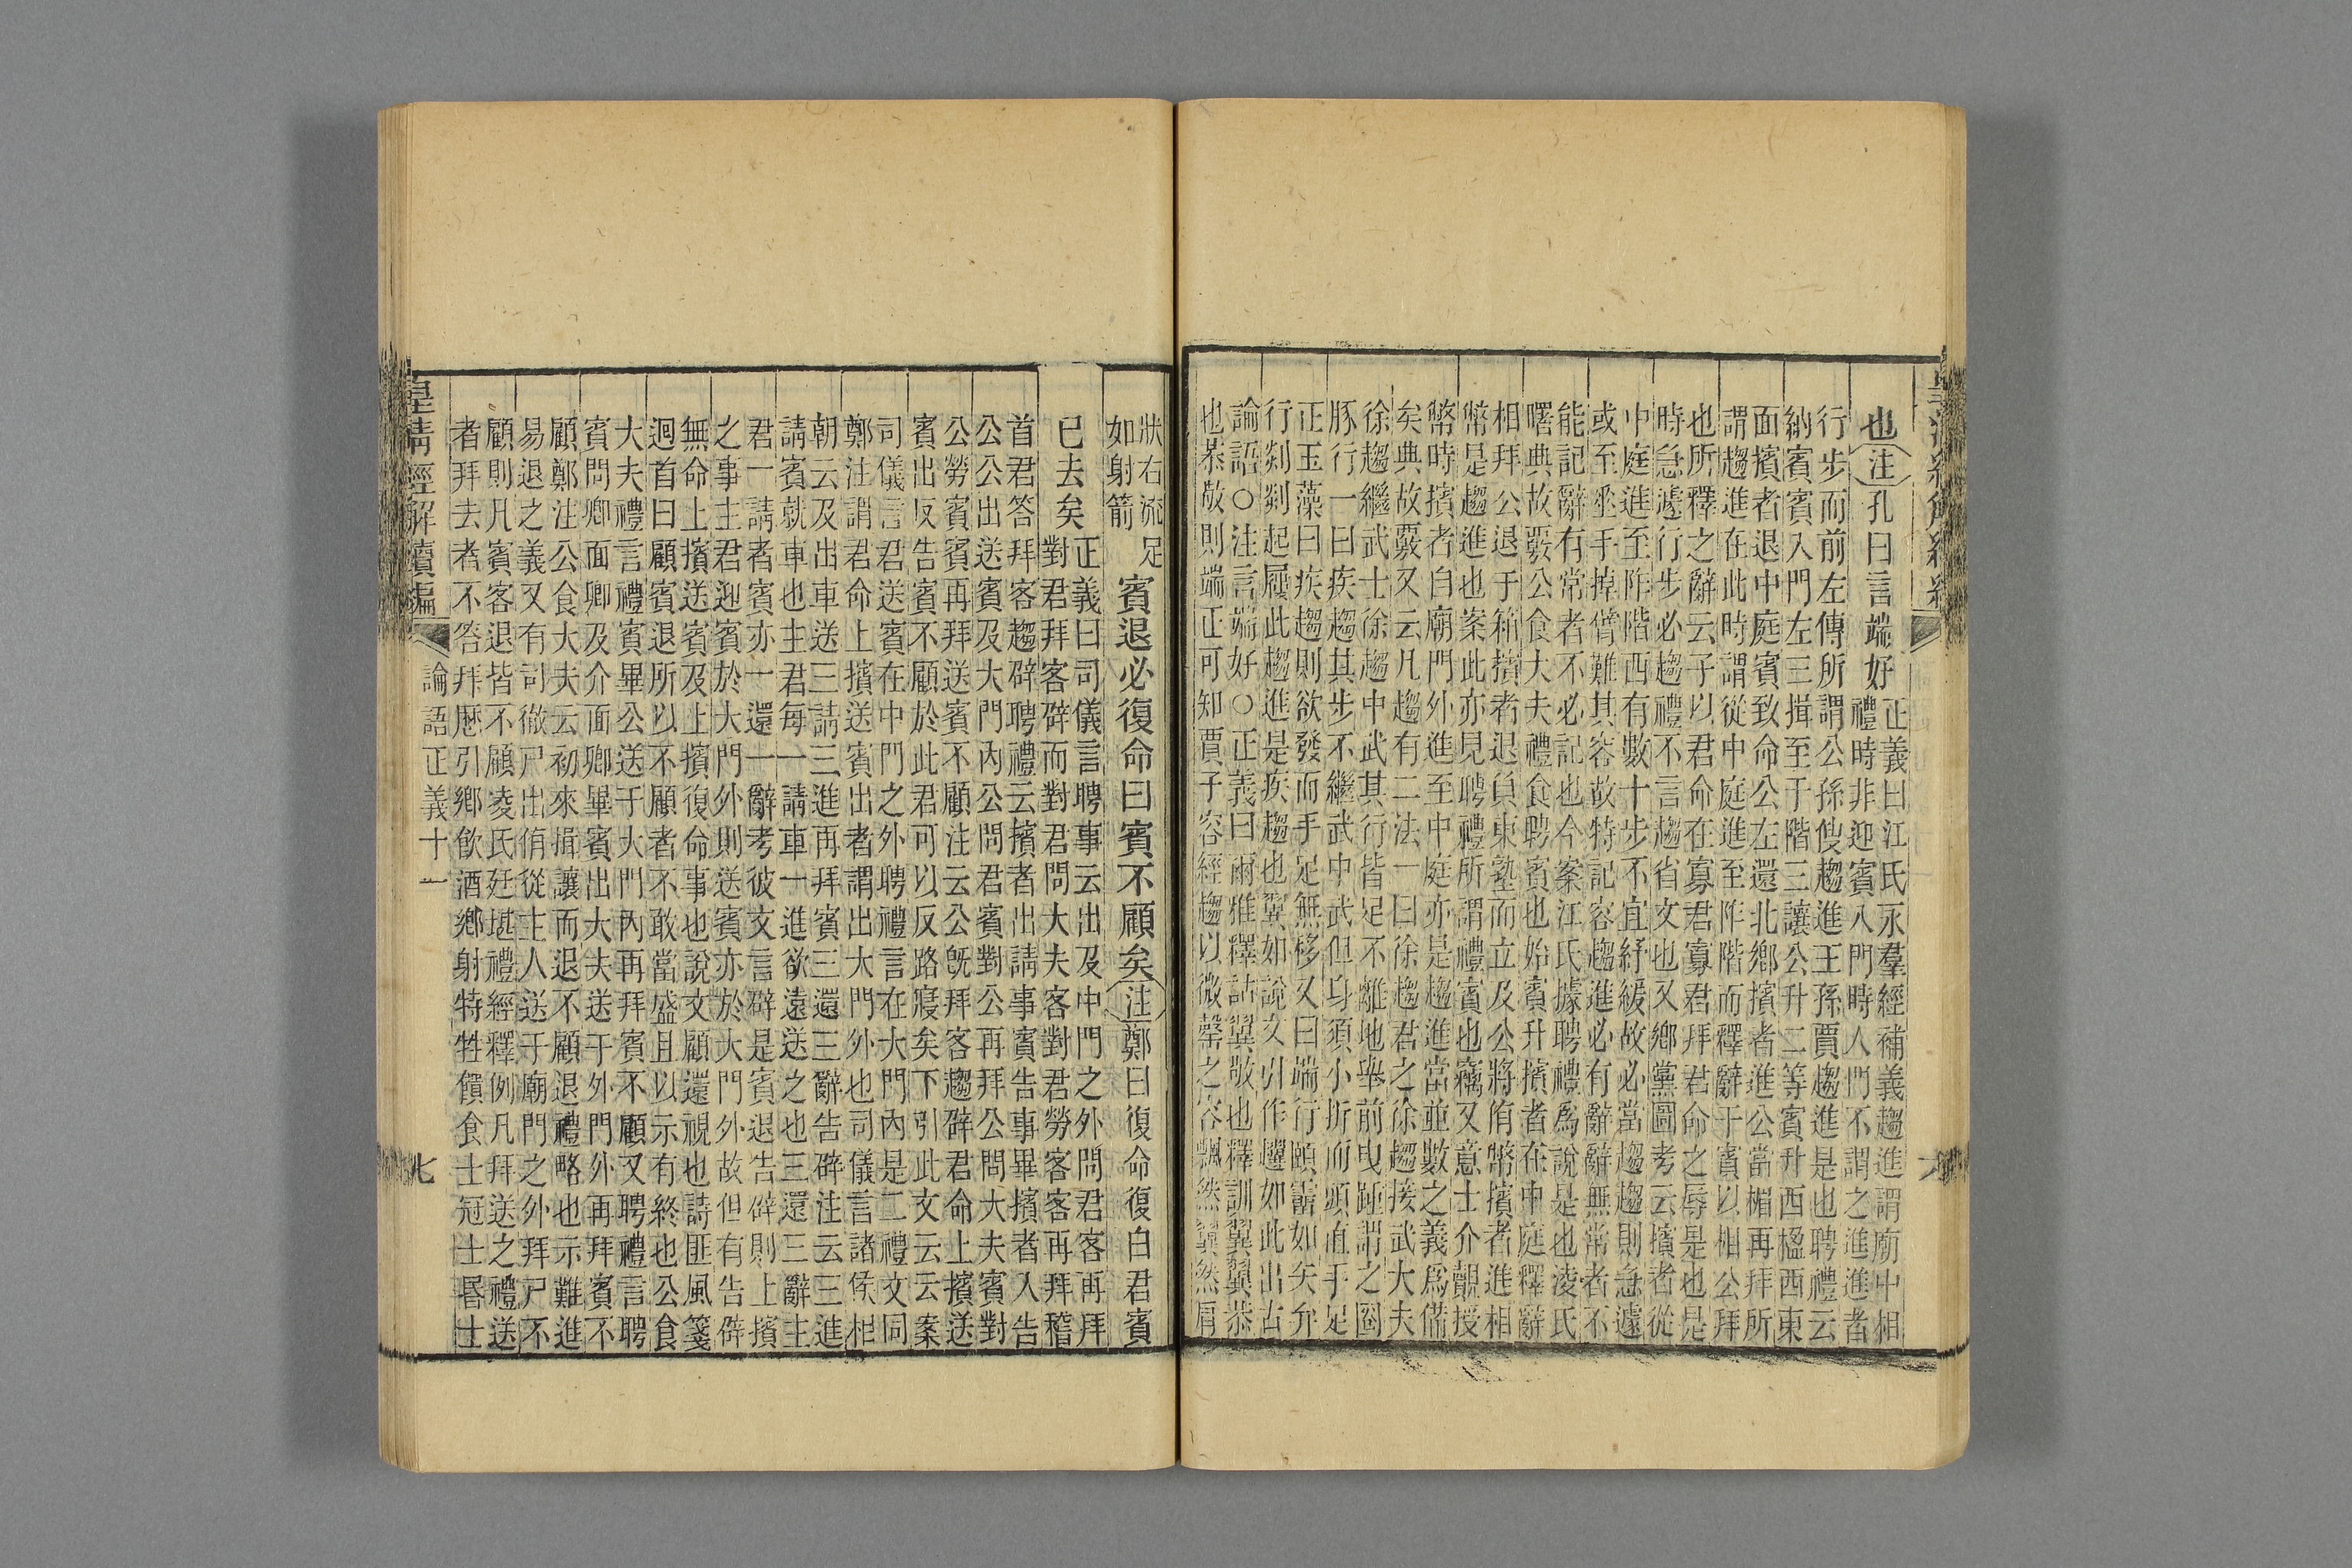 也注孔曰言端好
正義曰江氏永羣經補義趨進謂廟中相
禮時非迎賓入門時人門不謂之進進者
行步而前左傳所謂公孫傁趨進王孫賈趨進是也聘禮云
納賓賓入門左三揖至于階三讓公升二等賓升西楹西東
面擯者退中庭賓致命公左還北鄉擯者進公當楣再拜所
謂趨進在此時謂從中庭進至阼階而釋辭于賓以相公拜
也所釋之辭云子以君命在寡君寡君拜君命之辱是也是
時急遽行步必趨禮不言趨省文也又鄉黨圖考云擯者從
中庭進至阼階西有數十步不宜紓緩故必當趨趨則急遽
或至垂手掉臂難其容故特記容趨進必有辭辭無常者不
能記辭有常者不必記也今案江氏據聘禮爲說是也淩氏
曙典故覈公食大夫禮食聘賓也始賓升擯者在中庭釋辭
相拜公退于箱擯者退負東塾而立及公將侑幣擯者進相
幣是趨進也案此亦見聘禮所謂禮賓也竊又意士介覿授
幣時擯者自廟門外進至中庭亦是趨進當並數之義爲備
矣典故覈又云凡趨有二法一曰徐趨君之徐趨接武大夫
徐趨繼武士徐趨中武其行皆足不離地舉前曳踵謂之圈
豚行一曰疾趨其步不繼武中武但身須小折而頭直手足
正玉藻曰疾趨則欲發而手足無移又曰端行頤霤如矢弁
行剡剡起屨此趨進是疾趨也翼如說文引作趩如此出古
論語○注言端好○正義曰爾雅釋詁翼敬也釋訓翼翼恭
也恭敬則端正可知賈子容經趨以微磬之容飄然翼然肩
狀右流足
如射箭
賓退必復命曰賓不顧矣注鄭曰復命復白君賓
已去矣
正義曰司儀言聘事云出及中門之外問君客再拜
對君拜客辟而對君問大夫客對君勞客客再拜稽
首君答拜客趨辟聘禮云擯者出請事賓告事畢擯者入告
公公出送賓及大門內公問君賓對公再拜公問大夫賓對
公勞賓賓再拜送賓不顧注云公既拜客趨辟君命上擯送
賓出反告賓不顧於此君可以反路寢矣下引此文云云案
司儀言君送賓在中門之外聘禮言在大門內是二禮文同
鄭注謂君命上擯送賓出者謂出大門外也司儀言諸侯相
朝云及出車送三請三進再拜賓三還三辭告辟注云三進
請賓就車也主君每一請車一進欲遠送之也三還三辭主
君一請者賓亦一還一辭考彼文言辟是賓退告辟則上擯
之事主君迎賓於大門外則送賓亦於大門外故但有告辟
無命上擯送賓及上擯復命事也說文顧還視也詩匪風箋
迴首曰顧賓退所以不顧者不敢當盛且以示有終也公食
大夫禮言禮賓畢公送于大門內再拜賓不顧又聘禮言聘
賓問卿面卿及介面卿畢賓出大夫送于外門外再拜賓不
顧鄭注公食大夫云初來揖讓而退不顧退禮略也示難進
易退之義又有司徹尸出侑從主人送于廟門之外拜尸不
顧則凡賓客退皆不顧凌氏廷堪禮經釋例凡拜送之禮送
者拜去者不答拜歷引鄉飲酒鄉射特牲饋食士冠士昏士
皇淸經解續編
論語正義十一
七